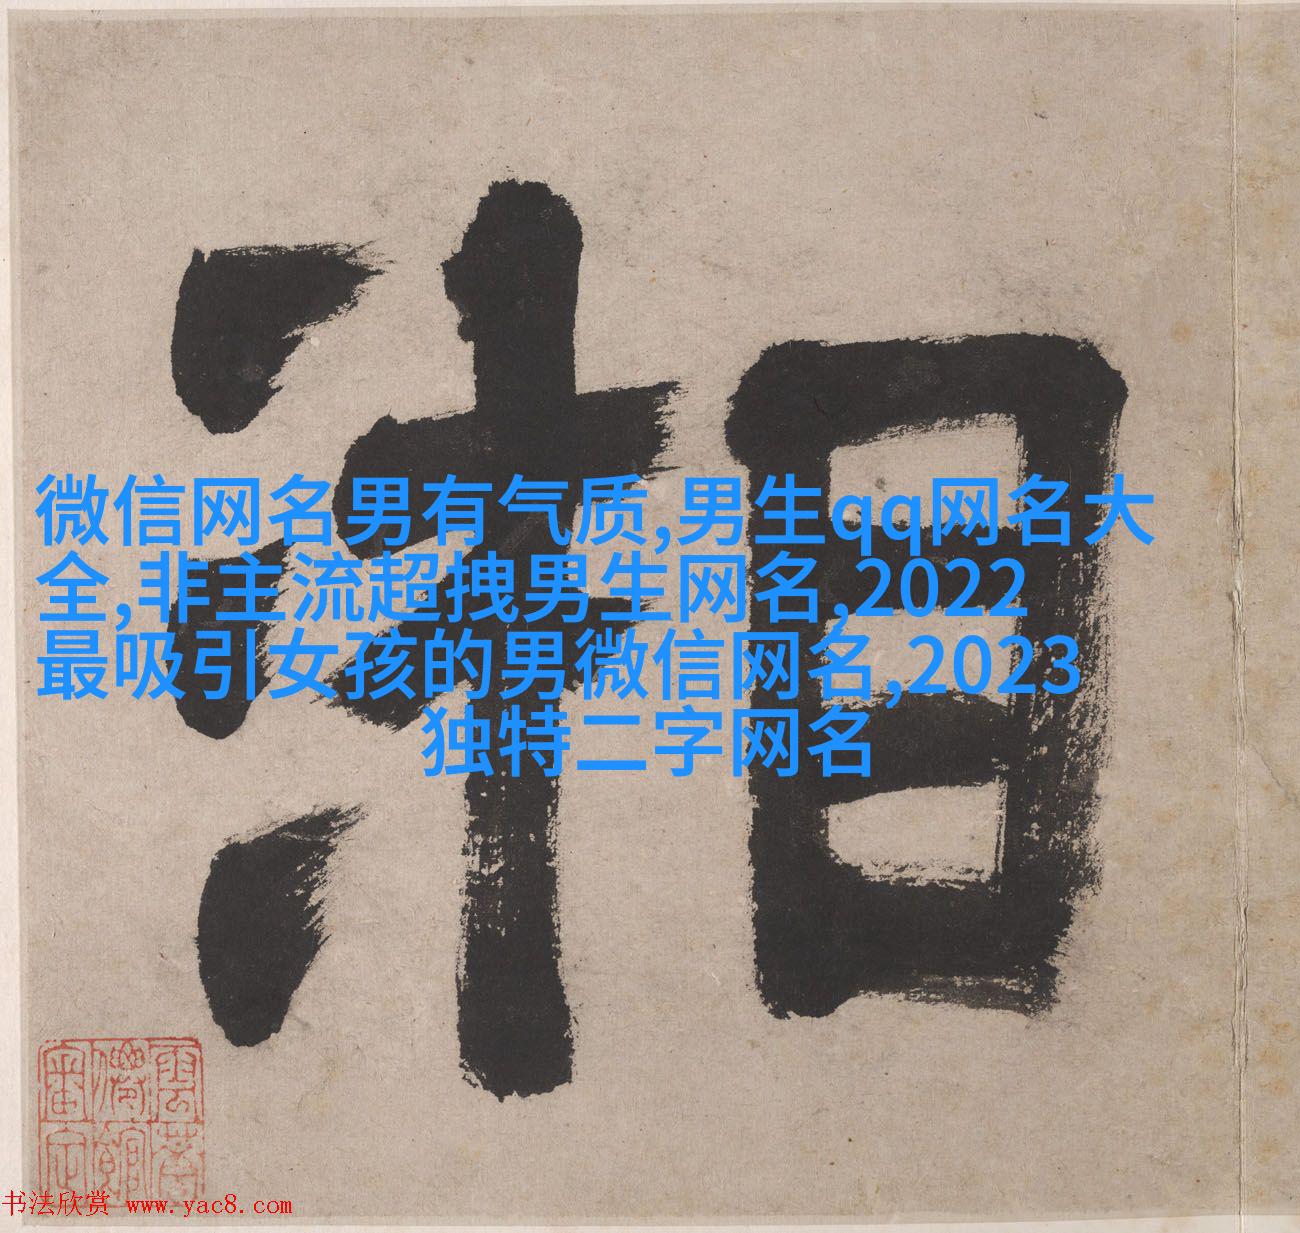 湘
微信网名男有气质,男生qq网名大
全,非主流超拽男生网名,2022
最吸引女孩的男微信网名,2023
独特二字网名
书法欣赏 www.yac8.com